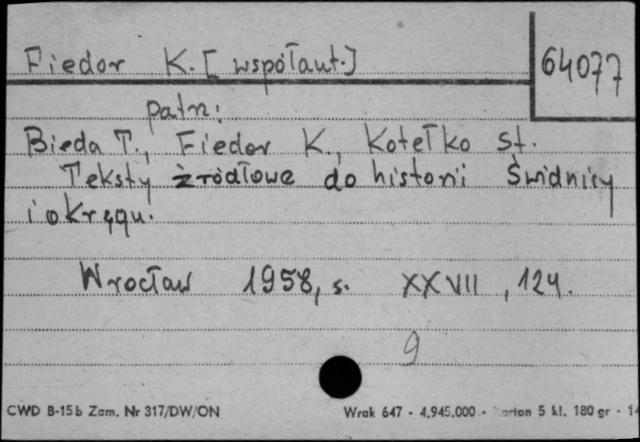 Fiedor K. [współaut.]
64077
patrz:
Bieda T., Fiedor K., Kotełko St.
Teksty źródłowe do historii Świdnicy
i okręgu.
Wrocław 1958, s. XXVII, 124.
9
CWD B-15b Zam. Nr 317/DW/ON
Wrak 647 - 4.945.000 - Karton 5 kl. 180 gr - 14